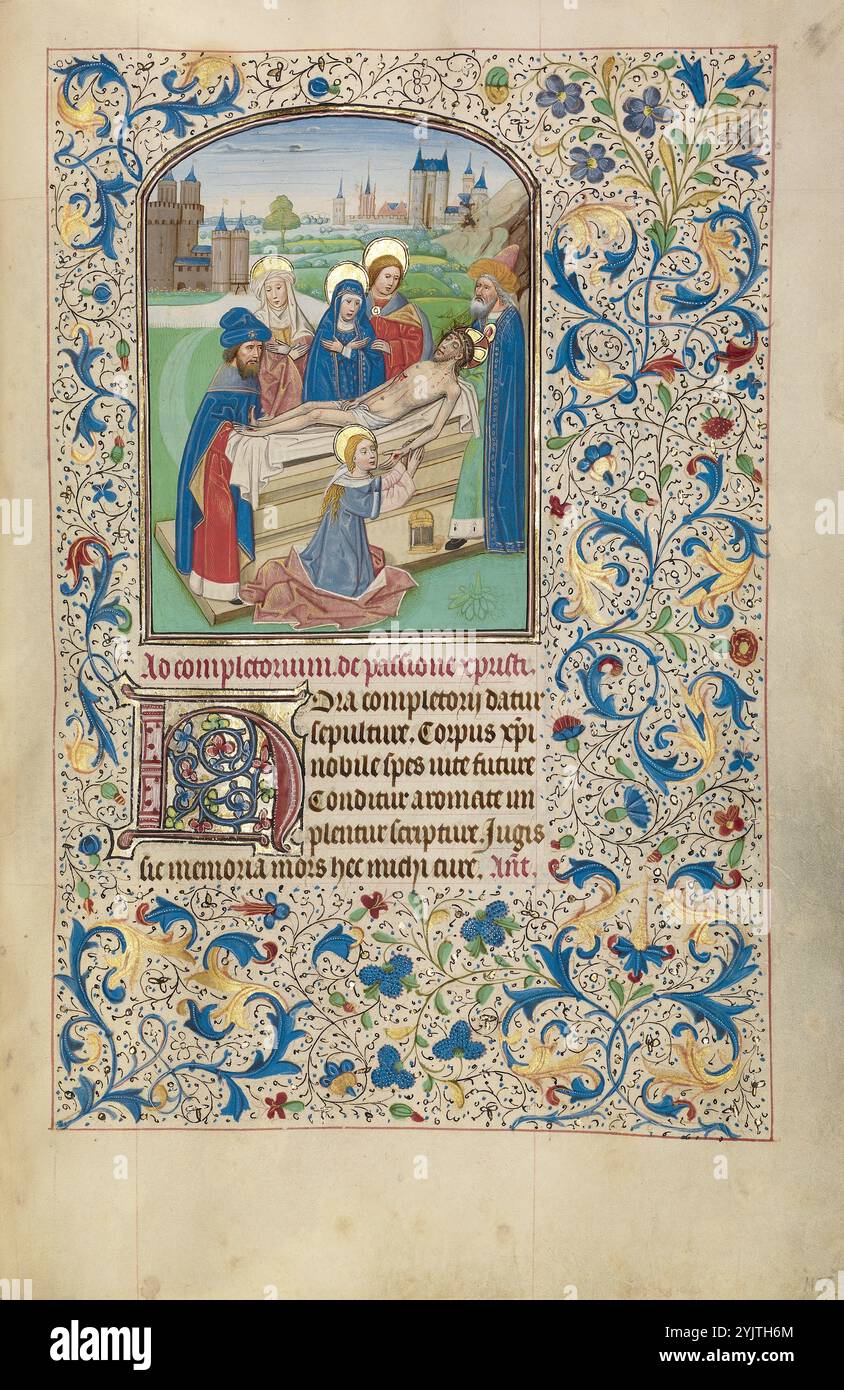 Ad completorium. de passione xpristi.
Hora completorij datur
sepulture. Corpus xpi
nobile spes uite future
Conditur aromate un
plentur scripture. Jugis
sic memoria mors hec michi cure. Ant.
alamy
Image ID: 2YJTH6M
www.alamy.com